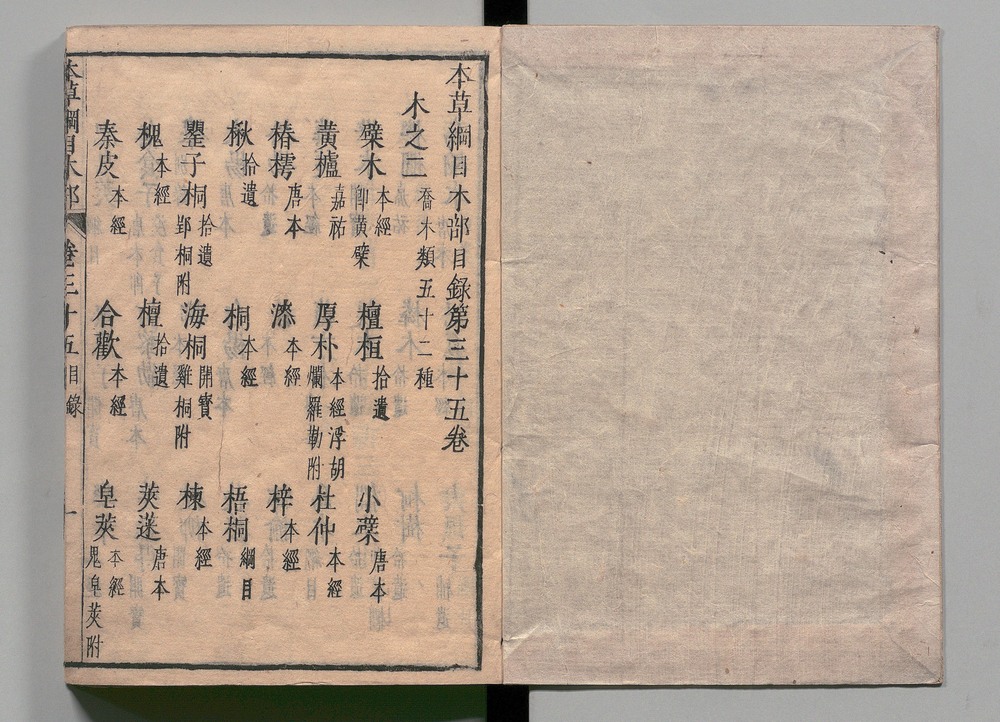 本草綱目木部目録第三十五卷
木之二 喬木類五十二種
檗木 本經 卽黄檗 檀桓 拾遺 小檗 唐本
黄櫨 嘉祐 厚朴 本經 浮胡爛羅勒附 杜仲 本經
椿樗 唐本 漆 本經 梓 本經
楸 拾遺 桐 本經 梧桐 綱目
罌子桐 拾遺 郢桐附 海桐 開寳 雞桐附 楝 本經
槐 本經 檀 拾遺 莢蒾 唐本
秦皮 本經 合歡 本經 皁莢 本經 鬼皁莢附
本草綱目木部 卷三十五目録 一